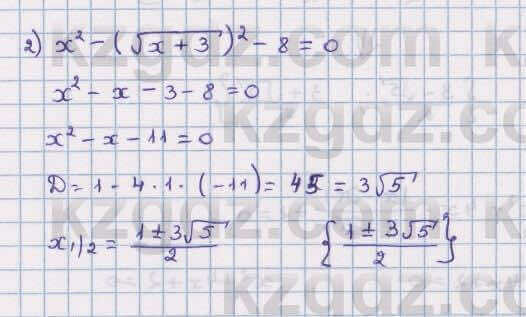 2) x² - (√x + 3)² - 8 = 0
x² - x - 3 - 8 = 0
x² - x - 11 = 0
D = 1 - 4 · 1 · (-11) = 45 = 3√5
x₁,₂ = (1 ± 3√5)/2 {(1 ± 3√5)/2}
kzgdz.com
kzgdz.com
kzgdz.com